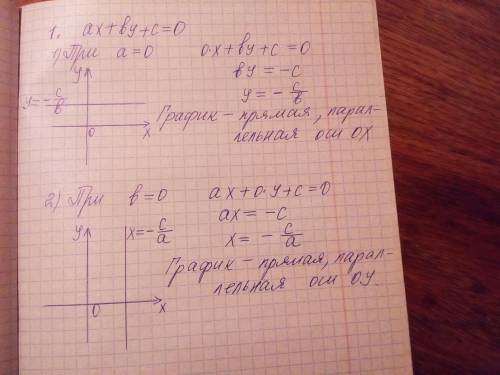 1. ax+by+c=0
1) При a=0 0·x+by+c=0
by=-c
y=-c/b
y
y=-c/b
0
x
График - прямая, парал-
лельная оси OX
2) При b=0 ax+0·y+c=0
ax=-c
x=-c/a
y
x=-c/a
0
x
График - прямая, парал-
лельная оси OY.